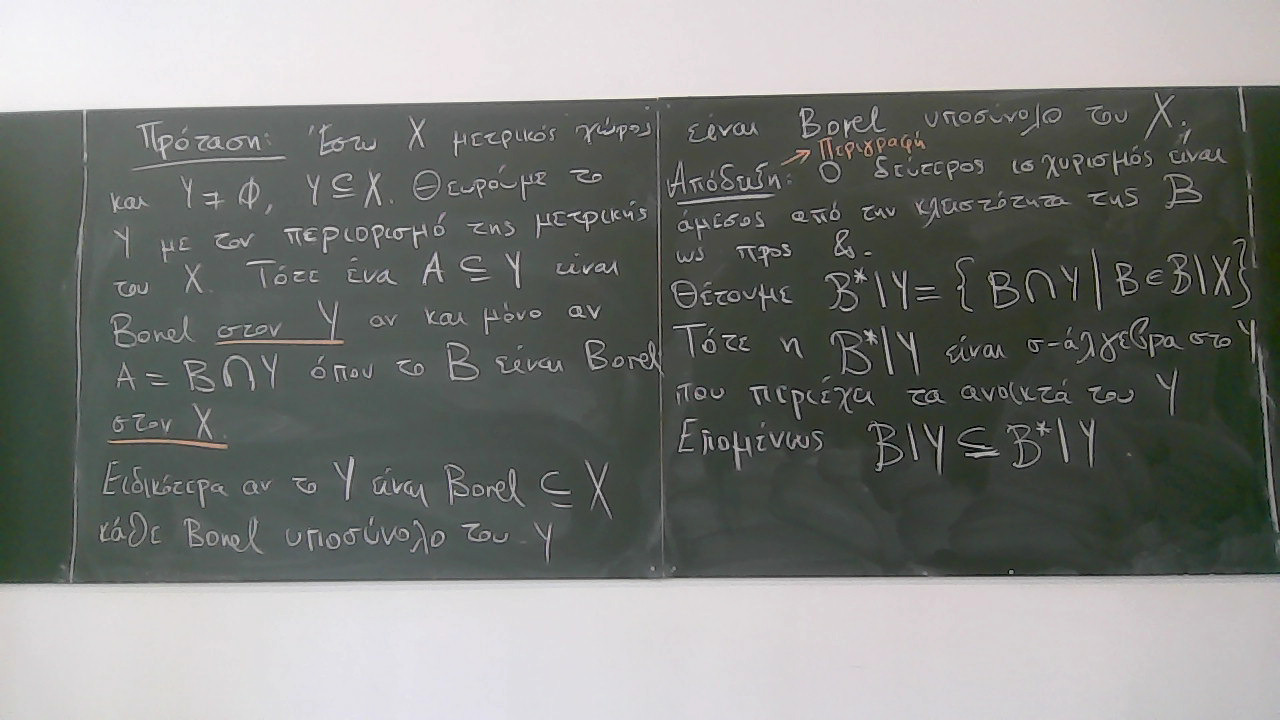 Πρόταση: Έστω X μετρικός χώρος
και Y ≠ ∅, Y ⊆ X. Θεωρούμε το
Y με τον περιορισμό της μετρικής
του X. Τότε ένα A ⊆ Y είναι
Borel στον Y αν και μόνο αν
A = B ∩ Y όπου το B είναι Borel
στον X.
Ειδικότερα αν το Y είναι Borel ⊆ X
κάθε Borel υποσύνολο του Y
είναι Borel υποσύνολο του X.
→ Περιγραφή
Απόδειξη: Ο δεύτερος ισχυρισμός είναι
άμεσος από την κλειστότητα της B
ως προς &.
Θέτουμε B*|Y = { B ∩ Y | B ∈ B|X }
Τότε η B*|Y είναι σ-άλγεβρα στο Y
που περιέχει τα ανοικτά του Y
Επομένως B|Y ⊆ B*|Y